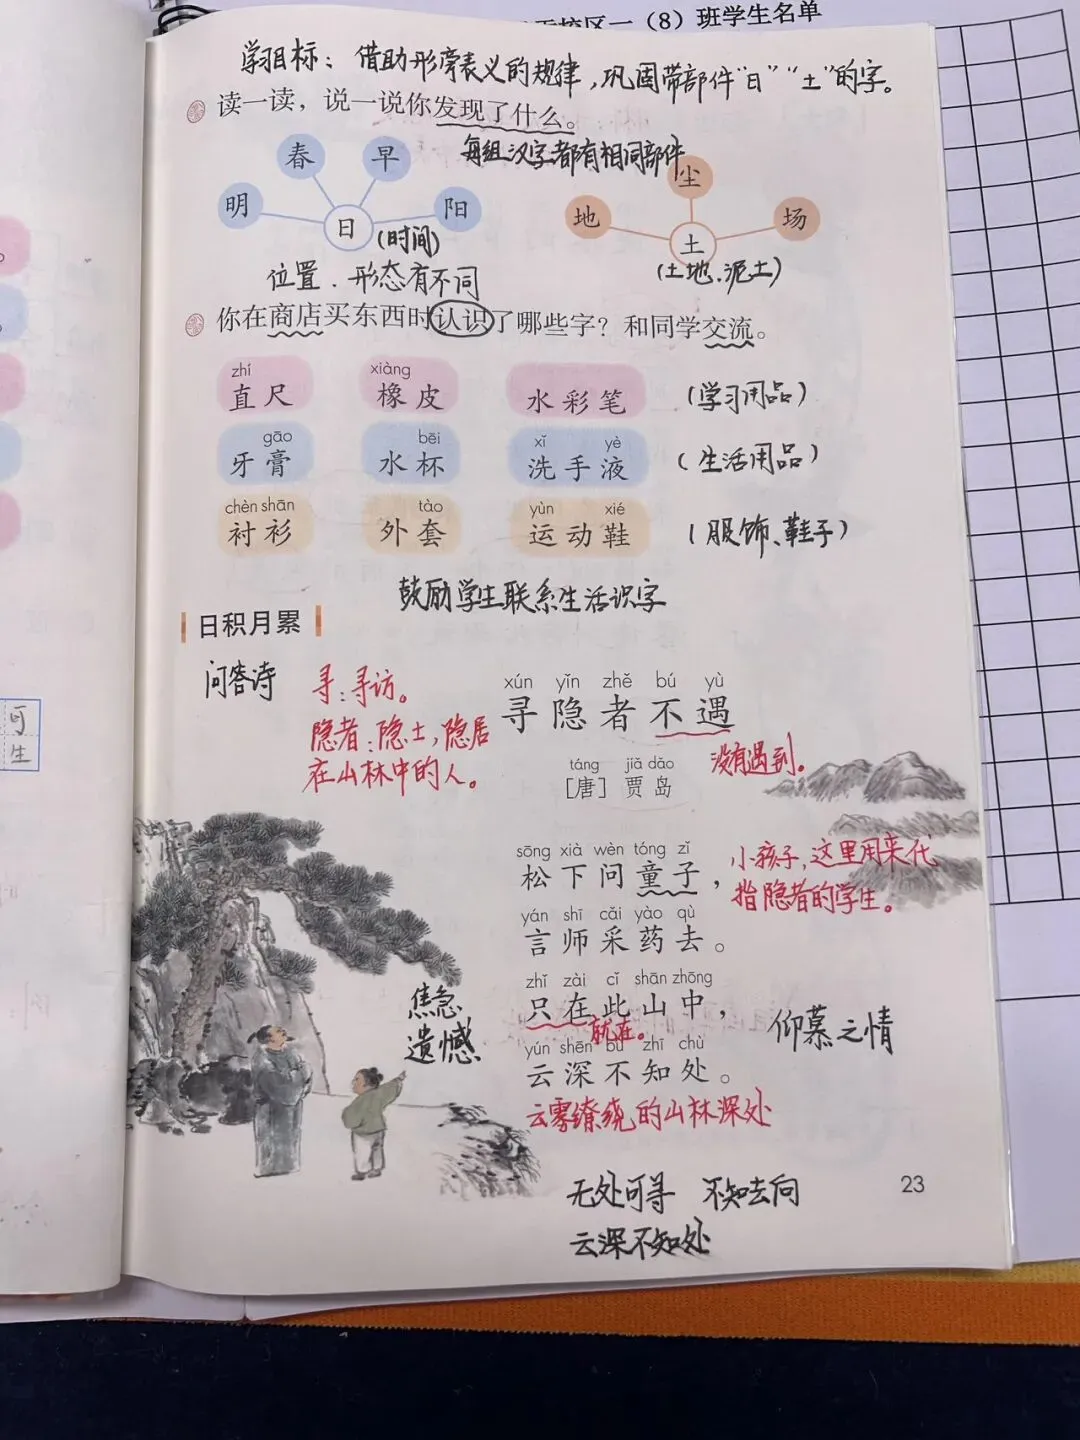 校区一（8）班学生名单
学习目标：借助形旁表义的规律，巩固带部件“日”“土”的字。
读一读，说一说你发现了什么。
每组汉字都有相同部件
春 早
明 阳
日
(时间)
位置．形态有不同
尘
地 场
土
(土地、泥土)
你在商店买东西时认识了哪些字？和同学交流。
zhí xiàng
直尺 橡皮 水彩笔 (学习用品)
gāo bēi xǐ yè
牙膏 水杯 洗手液 (生活用品)
chèn shān tào yùn xié
衬衫 外套 运动鞋 (服饰、鞋子)
鼓励学生联系生活识字
日积月累
问答诗
寻：寻访。
隐者：隐士，隐居
在山林中的人。
xún yǐn zhě bú yù
寻隐者不遇
没有遇到。
táng jiǎ dǎo
［唐］贾岛
sōng xià wèn tóng zǐ
松下问童子，
小孩子，这里用来代
指隐者的学生。
yán shī cǎi yào qù
言师采药去。
zhǐ zài cǐ shān zhōng
只在此山中，
就在。
yún shēn bù zhī chù
云深不知处。
云雾缭绕的山林深处
焦急
遗憾
仰慕之情
无处可寻 不知去向
云深不知处
23
可
生